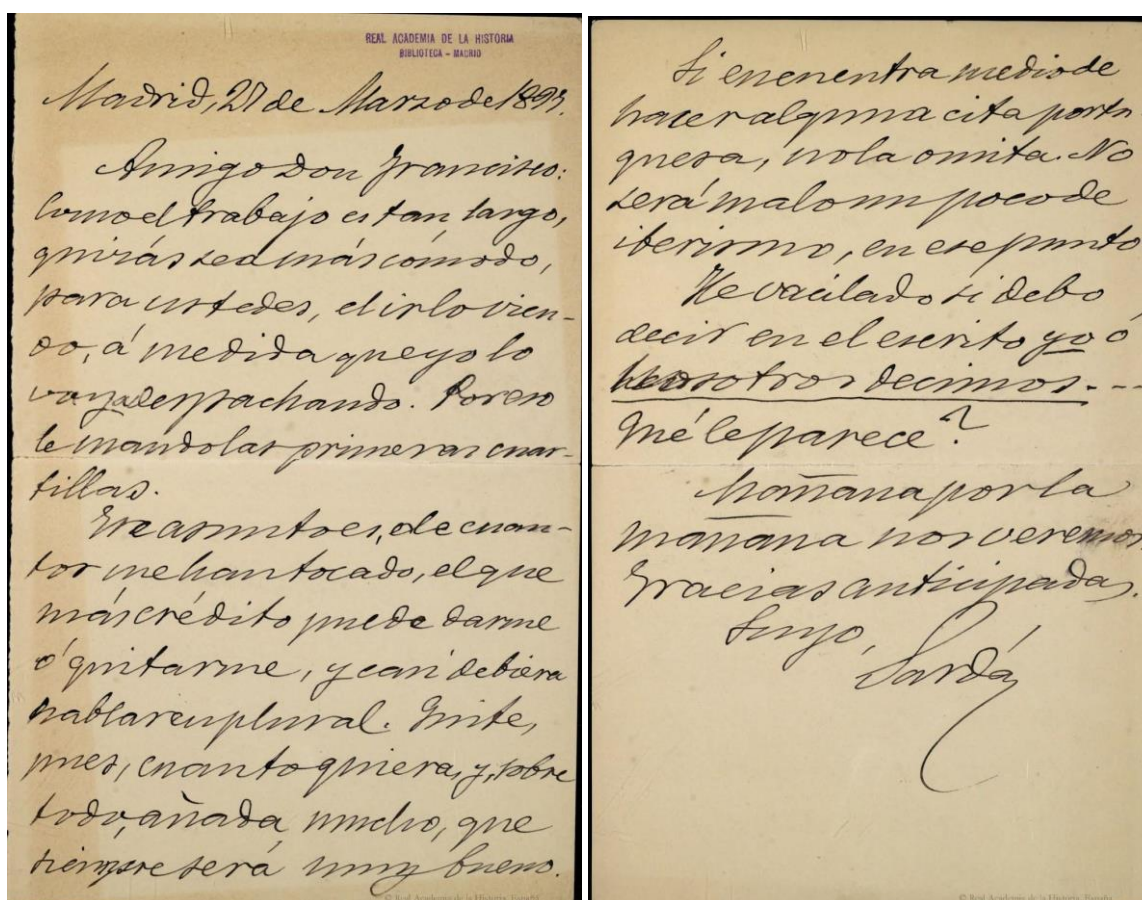 REAL ACADEMIA DE LA HISTORIA
BIBLIOTECA - MADRID
Madrid, 27 de Marzo de 1893.
Amigo Don Francisco:
Como el trabajo es tan largo,
quizás sea más cómodo,
para ustedes, el irlo vien-
do, á medida que yo lo
vaya despachando. Por eso
le mando las primeras cuar-
tillas.
Ese asunto es, de cuan-
tos me han tocado, el que
más crédito puede darme
ó quitarme, y casi debiera
hablar en plural. Quite,
pues, cuanto quiera, y, sobre
todo, añada mucho, que
siempre será muy bueno.
© Real Academia de la Historia. España
Si encuentra medio de
hacer alguna cita portu
guesa, no la omita. No
será malo un poco de
iberismo, en ese punto
He vacilado si debo
decir en el escrito yo ó
nosotros decimos. - -
Qué le parece?
Mañana por la
mañana nos veremos
Gracias anticipadas.
Suyo,
Sardá
© Real Academia de la Historia. España